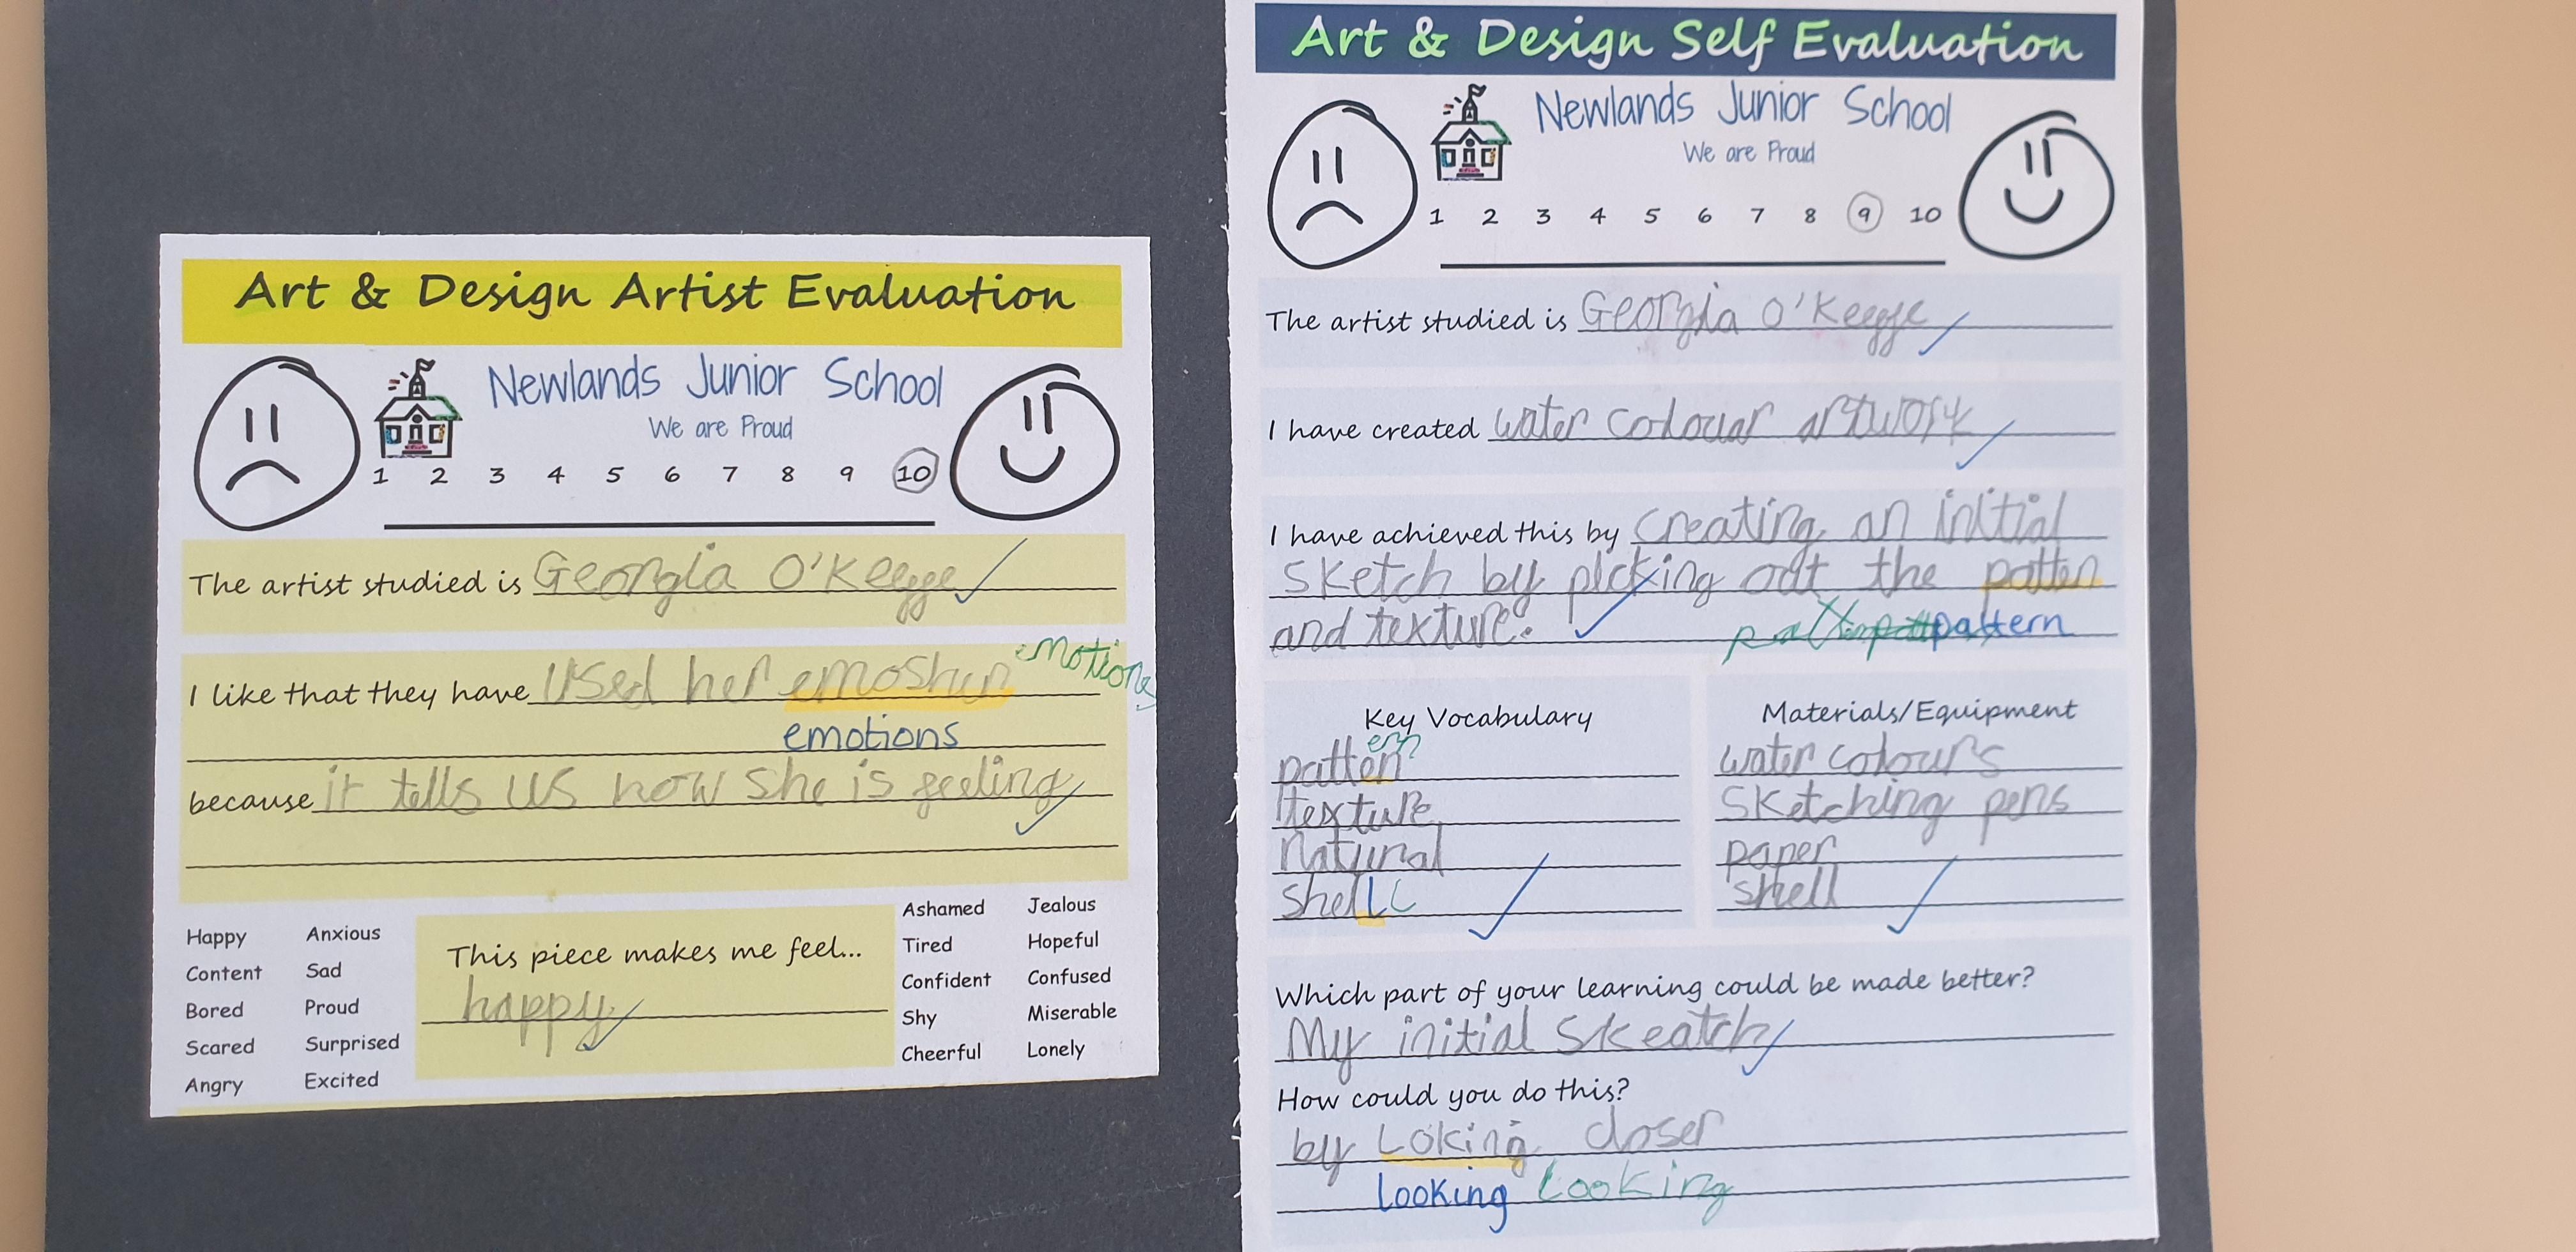 Art & Design Artist Evaluation
Newlands Junior School
We are Proud
1 2 3 4 5 6 7 8 9 10
The artist studied is Georgia O'Keeffe
I like that they have Used her emoshun emotions
emotions
because it tells us how she is feeling
Happy
Content
Bored
Scared
Angry
Anxious
Sad
Proud
Surprised
Excited
This piece makes me feel...
happy.
Ashamed
Tired
Confident
Shy
Cheerful
Jealous
Hopeful
Confused
Miserable
Lonely
Art & Design Self Evaluation
Newlands Junior School
We are Proud
1 2 3 4 5 6 7 8 9 10
The artist studied is Georgia O'Keeffe
I have created water colouar artwork
I have achieved this by creating an initial
sketch by picking out the patten
and texture.
pattern
Key Vocabulary
patten ern
texture
natural
shell L
Materials/Equipment
water colours
Sketching pens
paper
shell
Which part of your learning could be made better?
My initial Skeatch
How could you do this?
by Loking closer
looking Looking